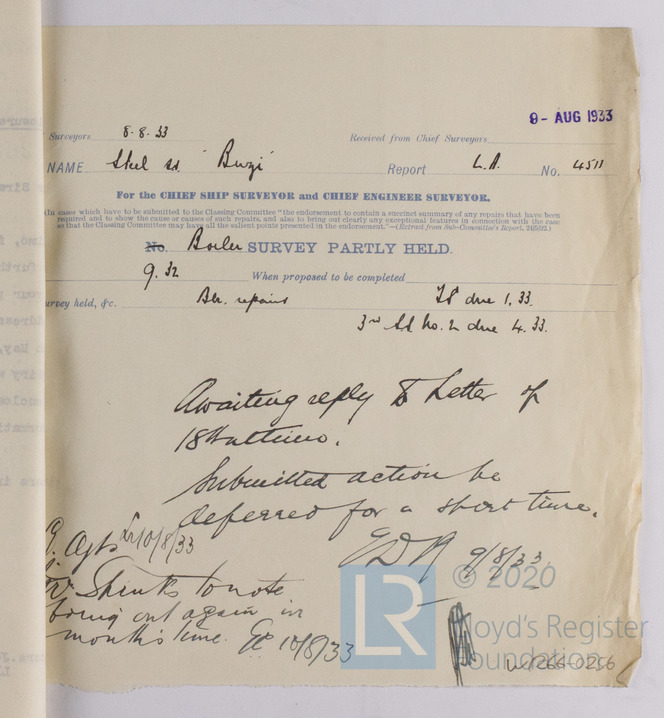 9- AUG 1933
Surveyors 8-8-33 Received from Chief Surveyors
NAME Steel ss "Buzi" Report L.A. No. 4511
For the CHIEF SHIP SURVEYOR and CHIEF ENGINEER SURVEYOR.
(In cases which have to be submitted to the Classing Committee "the endorsement to contain a succinct summary of any repairs that have been
required and to show the cause or causes of such repairs, and also to bring out clearly any exceptional features in connection with the case
so that the Classing Committee may have all the salient points presented in the endorsement."—(Extract from Sub-Committee's Report,
No. Boiler SURVEY PARTLY HELD.
9.32 When proposed to be completed
urvey held, &c. Blr. repairs TS due 1.33.
3rd SS No. 2 due 4.33.
Awaiting reply to letter of
18th ultimo.
Submitted action be
deferred for a short time.
9/8/33.
Agts 10/8/33
to note
bring out again in
month's time. 10/8/33
LR
© 2020
Lloyd's Register
Foundation
W1266-0256